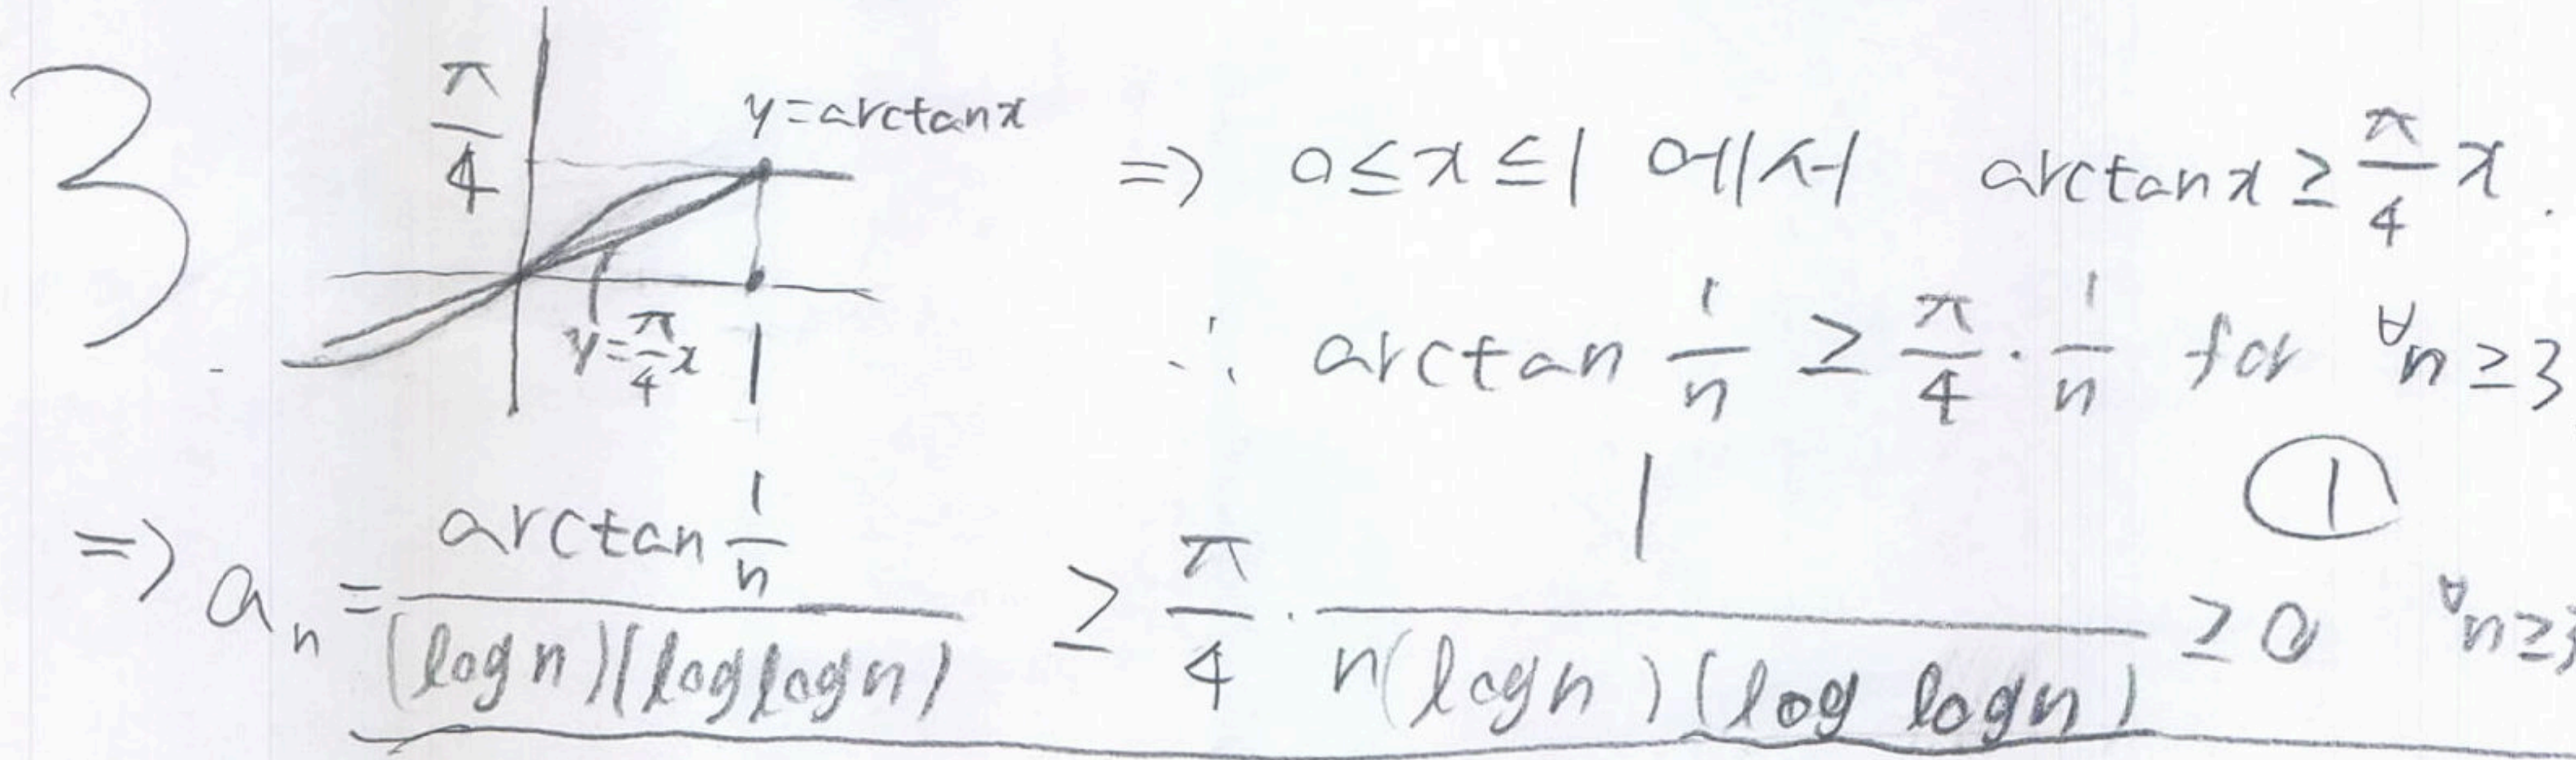 3.
π/4
y=arctanx
y=π/4 x
1
⇒ 0≤x≤1 에서 arctanx ≥ π/4 x.
∴ arctan 1/n ≥ π/4 · 1/n for ∀n≥3
①
⇒ aₙ = (arctan 1/n)/((log n)(log log n)) ≥ π/4 · 1/(n(log n)(log log n)) ≥ 0 ∀n≥3